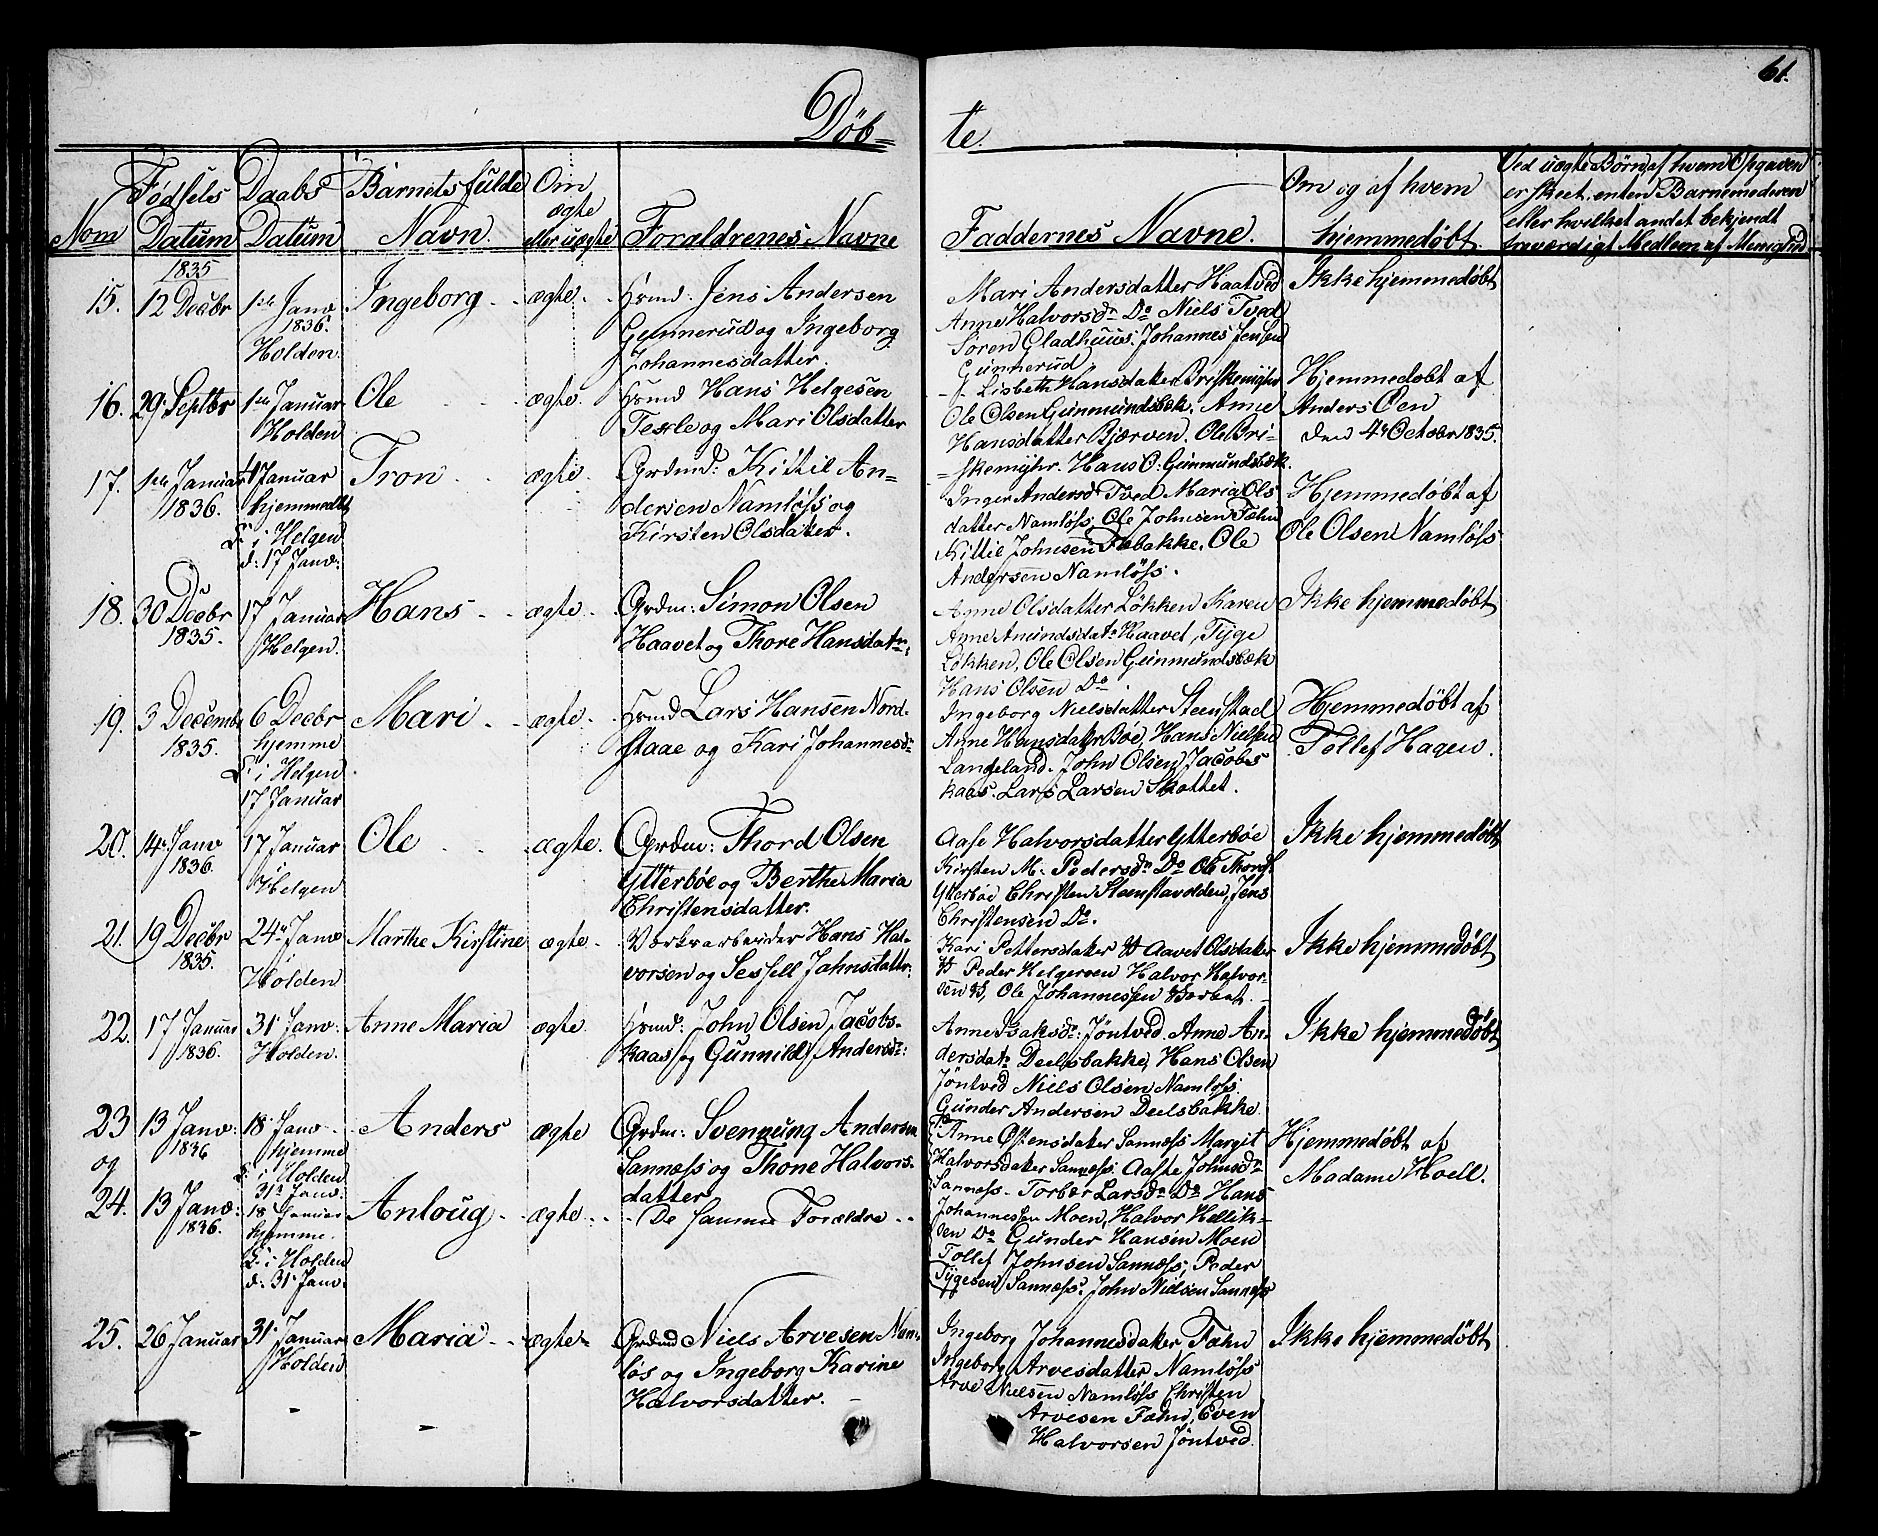 61.
Døb=
te.
Nom
Fødsels Datum
Daabs Datum
Barnets fulde Navn.
Om ægte eller uægte
Forældrenes Navne
Faddernes Navne.
Om og af hvem hjemmedøbt
Ved uægte Børn af hvem Opgaven
er skeet, enten Barnemoderen
eller hvilket andet bekjendt
troværdigt Medlem af Menighed
15.
1835
12 Decbr
1ste Janv
1836.
Holden
Ingeborg
ægte
Hsmd. Jens Andersen
Gunnerud og Ingeborg
Johannesdatter.
Mari Andersdatter Haatved
Anne Halvorsdr Do Niels Tved
Søren Gladhuus. Johannes Jensen
Gunnerud
Ikke hjemmedøbt
16.
29 Septbr
1ste Januar
Holden
Ole
ægte.
Hsmd Hans Helgesen
Tesrle og Mari Olsdatter
Lisbeth Hansdatter Briskemyhr
Ole Olsen Gunmundsbæk. Anne
Hansdatter Bjærven. Ole Bri-
=skemyhr. Hans O: Gunmundsbæk.
Hjemmedøbt af
Anders Øen
den 4de Octobr 1835.
17.
1ste Januar
1836.
4 Januar
hjemmedbt
F. i Helgen
d: 17 Janv:
Tron
ægte
Grdmd: Kittil An=
dersen Namløss og
Kirsten Olsdatter.
Inger Andersd Tved Maria Ols
datter Namløss, Ole Johnsen Fæhn
Kittil Johnsen Febakke, Ole
Andersen Namløss.
Hjemmedøbt af
Ole Olsen Namløss
18.
30 Decbr
1835.
17 Januar
Helgen.
Hans
ægte
Grdm: Simon Olsen
Haavet og Thore Hansdatr.
Anne Olsdatter Løkken Karen
Anne Amundsdatr Haavet, Tyge
Løkken, Ole Olsen Gunmundsbæk
Hans Olsen Do.
Ikke hjemmedøbt
19.
3 Decemb
1835.
6 Decbr
hjemme
F. i Helgen
17 Januar
Mari
ægte
Hsmd Lars Hansen Nord-
staae og Kari Johannesdr
Ingeborg Nielsdatter Steenstad
Anne Hansdatr Bøe, Hans Nielsen
Langeland. John Olsen Jacobs
kaas. Lars Larsen Skottet.
Hjemmedøbt af
Tollef Hagen.
20.
14 Janv
1836.
17 Januar
i
Helgen
Ole
ægte.
Grdm: Thord Olsen
Ytterbøe og Berthe Maria
Christensdatter.
Aase Halvorsdatter Ytterbøe
Kirsten M: Pedersdr Do Ole Thords
Ytterbøe Christen Steenstavolden, Jens
Christensen Do.
Ikke hjemmedøbt
21.
19 Decbr
1835.
24de Janv
i
Holden
Marthe Kirstine
ægte
Værksarbeider Hans Hal-
vorsen og Sessell Jahnsdattr.
Kari Pettersdatter Aavet Olsdatter
Peder Helgersen Halvor Halvor-
sen, Ole Johannessen
Ikke hjemmedøbt
22.
17 Januar
1836.
31 Janv.
Holden.
Anne Maria
ægte
Hsmd: John Olsen Jacobs-
kaas og Gunnild Andersdr:
Anne Isaksdr: Jøntved. Anne An-
dersdatr Deelsbakke, Hans Olsen
Jøntved Niels Olsen Namløss.
Gunder Andersen Deelsbakke.
Ikke hjemmedøbt
23
og
13 Janv:
1836
18 Janv
hjemme
F. i Holden
31 Janv.
Anders
ægte
Grdm: Svennung Andersen
Sannæss og Thone Halvors-
datter
Anne Østensdatter Sannæss Margit
Halvorsdatter Sannæss. Aaste Johnsdr
Sannæss. Torbær Larsdr Do Hans
Johannessen Moen, Halvor Kellik-
sen Do Gunder Hansen Moen
Tollef Johnsen Sannæss, Peder
Tygesen Sannæss. John Nielsen Sannæss
Hjemmedøbt af
Madame Hoell.
24.
13 Janv:
1836.
18 Januar
hjemme.
F. i Holden
d: 31 Janv.
Anloug
ægte
De samme Forældre
25.
26 Januar
31 Januar
Holden
Maria
ægte
Grdmd Niels Arvesen Nam-
løs og Ingeborg Karine
Halvorsdatter.
Ingeborg Johannesdatter Fæhn
Ingeborg Arvesdatter Namløss
Arve Nielsen Namløss Christen
Arvesen Fæhn, Even
Halvorsen Jøntved.
Ikke hjemmedøbt